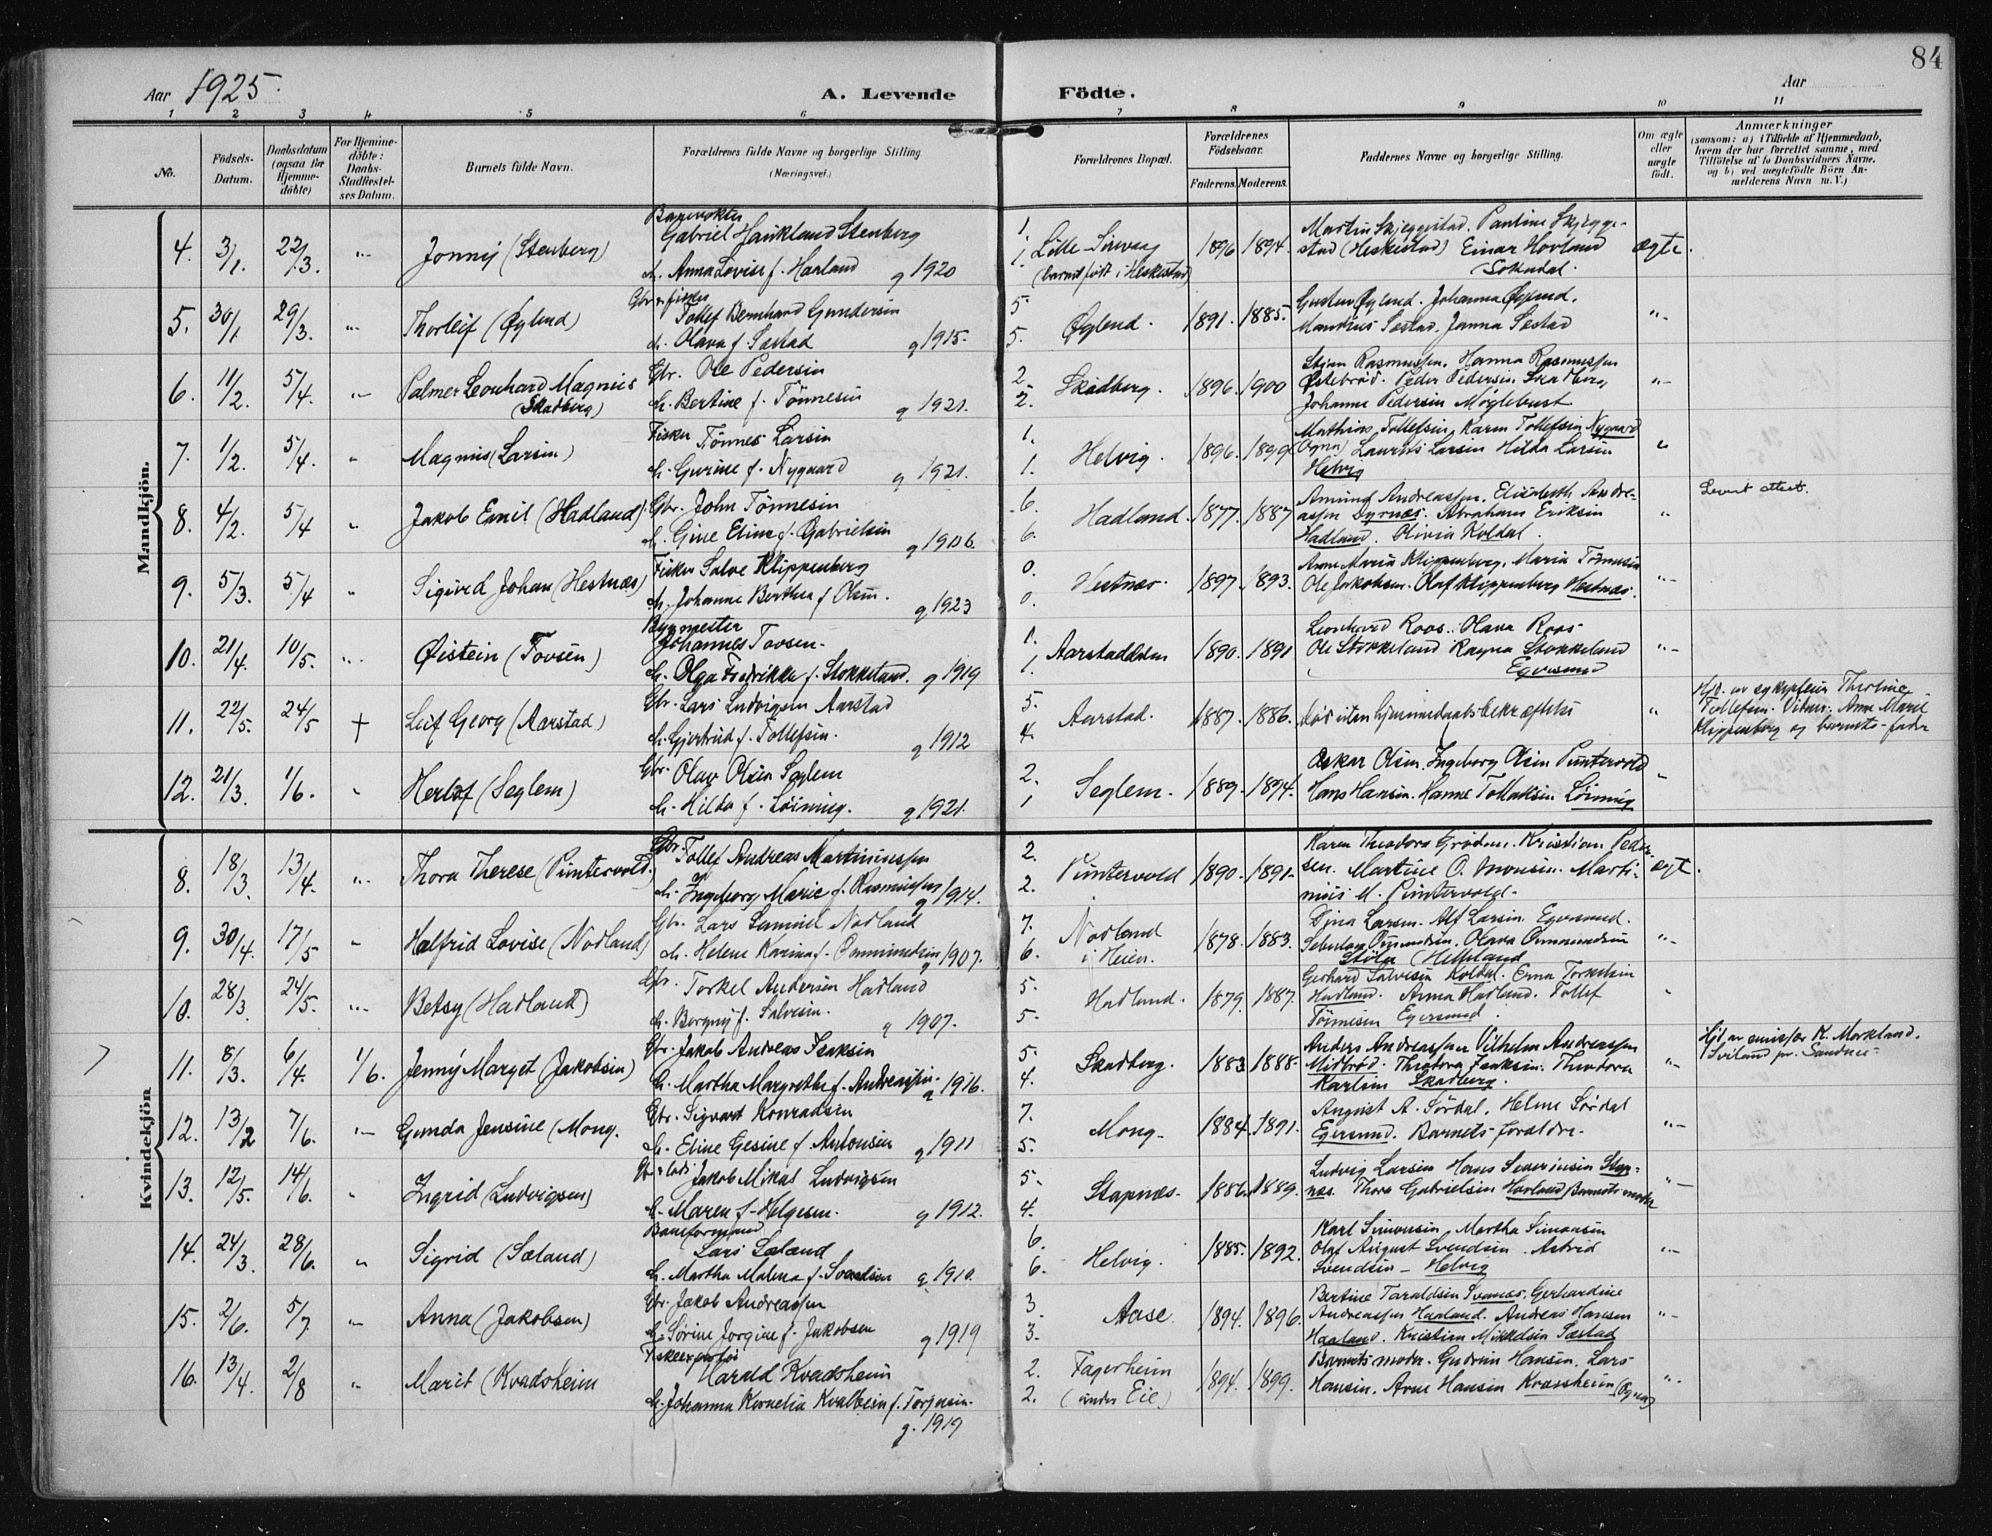 84
Aar 1925.
A. Levende Födte.
Aar
1 2 3 4 5 6 7 8 9 10 11
No.
Födsels-
Datum.
Daabsdatum
(ogsaa for
Hjemme-
döbte)
For Hjemme-
döbte:
Daabs-
Stadfestel-
ses Datum.
Barnets fulde Navn.
Forældrenes fulde Navne og borgerlige Stilling.
(Næringsvei.)
Forældrenes Bopæl.
Forældrenes
Födselsaar.
Faderens. Moderens.
Faddernes Navne og borgerlige Stilling.
Om ægte
eller
uægte
födt.
Anmærkninger
(saasom: a) i Tilfælde af Hjemmedaab,
hvem der har forrettet samme, med
Tilföielse af to Daabsvidners Navne,
og b) ved uægtefödte Börn An-
melderens Navn m. V.)
Mandkjön.
4. 3/1. 22/3. Jonny (Stenberg)
Banevokter
Gabriel Haukland Stenberg
h. Anna Lovise f. Harland g 1920
1. 1. Lille Sirevaag
(barnet født i Heskestad)
1896 1894.
Martin Skjeggestad. Pauline Skjegge-
stad (Heskestad) Einar Hovland
Sokndal.
ægte.
5. 30/1. 29/3. Thorleif (Øglend)
Gbr. fisker
Tollef Bernhard Gundersen
h. Olava f. Sæstad g 1915.
5 5. Øglend. 1891. 1885.
Gustav Øglend. Johanna Øglend.
Mandius Sæstad. Janna Sæstad
6. 11/2. 5/4. Palmer Leonhard Magnus
(Skadberg)
Gbr. Ole Pedersen
h. Bertine f. Tønnesen g 1921.
2. 2. Skadberg. 1896. 1900
Stian Rasmussen. Hanna Rasmussen
Østebrød. Peder Pedersen Skadberg,
Johanne Pedersen Møglebust
7. 1/2. 5/4. Magnus (Larsen)
Fisker Tønnes Larsen
h. Gurine f. Nygaard g 1921.
1. 1. Helvig. 1896. 1899
Mathias Tollefsen, Karen Tollefsen Nygaard
Ogna) Laurits Larsen Hilda Larsen
Helvig
8. 4/2. 5/4 Jakob Emil (Hadland)
Gbr. John Tønnesen
h. Gine Elina f. Gabrielsen g 1906.
6. 6. Hadland. 1877. 1887
Amund Andreassen. Elisabeth Andre-
assen Dyrnæs. Abraham Eriksen
Hadland. Olivia Koldal.
Levert attest.
9. 5/3. 5/4 Sigurd Johan (Hestnæs)
Fisker Salve Klippenberg
h. Johanne Berthea f. Olsen. g 1923
0. 0. Hestnæs. 1897. 1893.
Anne Maria Klippenberg. Maria Tønnesen
Ole Jakobsen. Olaf Klippenberg Hestnæs.
10. 21/4. 10/5. Øistein (Tovsen)
Bygmester
Johannes Tovsen.
h. Olga Fredrikke f. Stokkeland. g 1919
1. 1. Aarstaddalen 1890. 1891
Leonhard Roos. Olava Roos.
Ole Stokkeland Ragna Stokkeland
Egersund
11. 22/5. 24/5 + Leif Georg (Aarstad)
Gbr. Lars Ludvigsen Aarstad
h. Gjertrud f. Tollefsen. g 1912
5. 4. Aarstad. 1887. 1886.
død uten hjemmedaabsbekræftelse
Hjd. av sykepleier Tholine
Tollefsen. Vitner: Anne Marie
Klippenberg og barnets fader
12. 21/3. 1/6. Herlof (Seglem)
Gbr. Olav Olsen Seglem
h. Hilda f. Lönning. g 1921.
2. 1 Seglem. 1889. 1894.
Oskar Olsen. Ingeborg Olsen Puntervold
Hans Hansen. Hanne Tollaksen Lönning
Kvindekjön
8. 18/3. 13/4. Thora Therese (Puntervold.
Gbr. Tollef Andreas Martiniussen
h. Ingeborg Marie f. Rasmussen g 1914.
2. 2. Puntervold 1890. 1891.
Karen Theodora Grødem. Kristian Peder-
sen. Martine O. Monsen. Marti-
nius M. Puntervold.
egt.
9. 30/4. 17/5 Halfrid Lovise (Nodland)
Gbr. Lars Samuel Nodland
h. Helene Karina f. Ommundsen g 1907.
7. 6. Nodland
i Heien. 1878. 1883.
Dina Larsen. Alf Larsen. Egersund.
Ommundsen. Olava Ommundsen
Støle (Helleland
10. 28/3. 24/5. Betsy (Hadland)
Gbr. Torkel Andersen Hadland
h. Bergny f. Salvesen. g 1907.
5. 5. Hadland. 1879. 1887.
Gerhard Salvesen Koldal. Erna Torkelsen
Hadland. Anna Hadland. Tollef
Tønnesen Egersund.
11. 8/3. 6/4. 1/6. Jenny Marget (Jakobsen)
Gbr. Jakob Andreas Isaksen
h. Martha Margrethe f. Andreassen g 1916.
5. 4. Skadberg. 1883. 1888.
Anders Andreassen Vilhelm Andreassen
Midbrød. Theodora Isaksen. Theodora
Karlsen Skadberg.
Hjd. av emissær K. Morkland.
Sviland pr. Sandnes.
12. 13/2 7/6. Gunda Jensine (Mong.
Gbr. Sigvart Konradsen
h. Eline Gesine f. Antonsen g 1911
7. 5. Mong. 1884. 1891.
August A. Sørdal. Helene Sørdal
Egersund. Barnets foraldre.
13. 12/5. 14/6. Ingrid (Ludvigsen)
Gbr. lods Jakob Mikal Ludvigsen
h. Maren f. Helgesen. g 1912.
5. 4. Stapnæs. 1886. 1889.
Ludvig Larsen Hans Severinsen Stap-
næs. Thora Gabrielsen Havland Barnets moder
14. 24/3. 28/6. Sigrid (Sæland)
Baneformand
Lars Sæland
h. Martha Malena f. Svendsen g 1910.
6. 6. Helvig. 1885. 1892.
Karl Simonsen, Martha Simonsen
Olaf August Svendsen. Astrid
Svendsen - Helvig
15. 2/6. 5/7. Anna (Jakobsen)
Gbr. Jakob Andreassen
h. Sørine Jorgine f. Jakobsen g 1919
3. 3. Aase. 1894. 1896.
Bertine Taraldsen Svanæs. Gerhardine
Andreassen Haaland. Andreas Hansen
Haaland. Kristian Mikkelsen Sæstad
16. 13/4. 2/8 Marit (Kvadsheim
Fiskeexportør
Harald Kvadsheim
h. Johanna Kornelia Kvalbein f. Torjusen.
g. 1919
2. 2. Fagerheim
(under Eie) 1894. 1899.
Barnets moder. Gudrun Hansen. Lars
Hansen. Arne Hansen Kvassheim (Ogna)